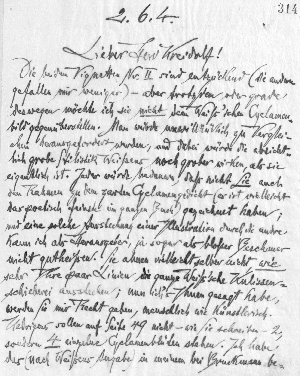 314
2.6.4.
Lieber Herr Kreidolf!
Die beiden Vignetten Nr. II sind entzückend (die andern
gefallen mir weniger) – aber trotzdem oder grade
deswegen möchte ich sie nicht dem Weiß'schen Cyclamen-
bild gegenüberstellen. Man würde unwillkürlich zu Verglei-
chen herausgefordert werden, und dabei würde die absicht-
lich grobe Weißens noch grober wirken, als sie
eigentlich ist. Jeder würde bedauern, daß nicht Sie auch
den Rahmen zu dem zarten Cyclamengedicht (er ist vielleicht
das poetisch feinste im ganzen Buch) gezeichnet haben;
und eine solche Ausstechung einer Illustration durch die andre
kann ich als Herausgeber, ja sogar als bloßer Beschauer
nicht gutheißen. Sie ahnen vielleicht selber nicht wie
sehr Ihre paar Linien die ganze Weiß'sche Kulissen-
schieberei ; nun ich's Ihnen gesagt habe,
werden Sie mir Recht geben, menschlich wie künstlerisch.
Uebrigens sollen auf Seite 49 nicht – wie Sie schreiben – 2,
sondern 4 einzelne Cyclamenblüten stehen. Ich habe
das (nach Weißens Angabe in meinem bei Bruckmann be-